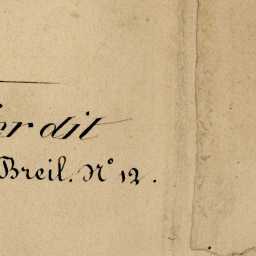 er dit
Breil. N° 12.